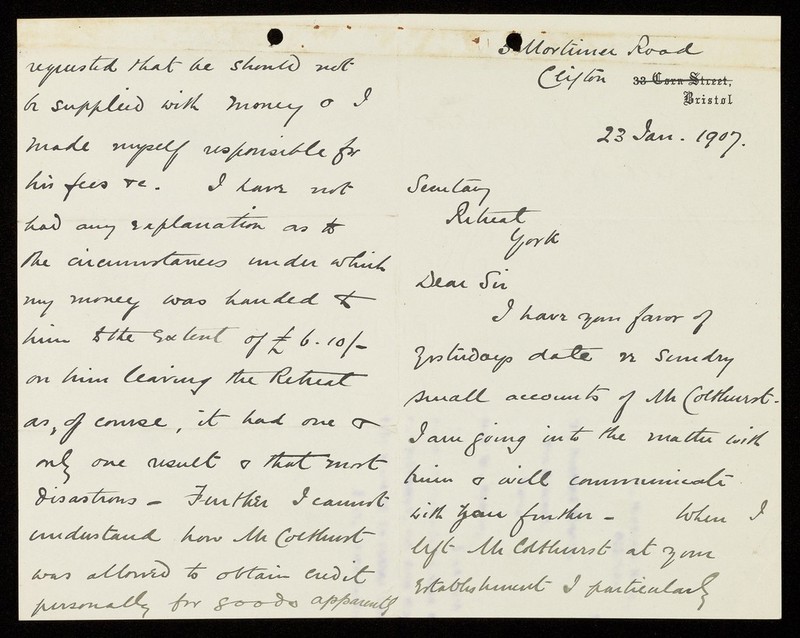 3 Mortimer Road
Clifton 33 Corn Street,
Bristol
23 Jan. 1907.
Secretary
Retreat
York
Dear Sir
I have your favor of
yesterdays date re sundry
small accounts of Mr Colthurst.
I am going into the matter with
him & will communicate
with you further - When I
left Mr Colthurst at your
Establishment I particularly
requested that he should not
be supplied with money & I
made myself responsible for
his fees &c. I have not
had any explanation as to
the circumstances under which
my money was handed to
him to the extent of £6.10/-
on him leaving the Retreat
as, of course, it had one &
only one result & that most
disastrous - Further I cannot
understand how Mr Colthurst
was allowed to obtain credit
personally for goods apparently